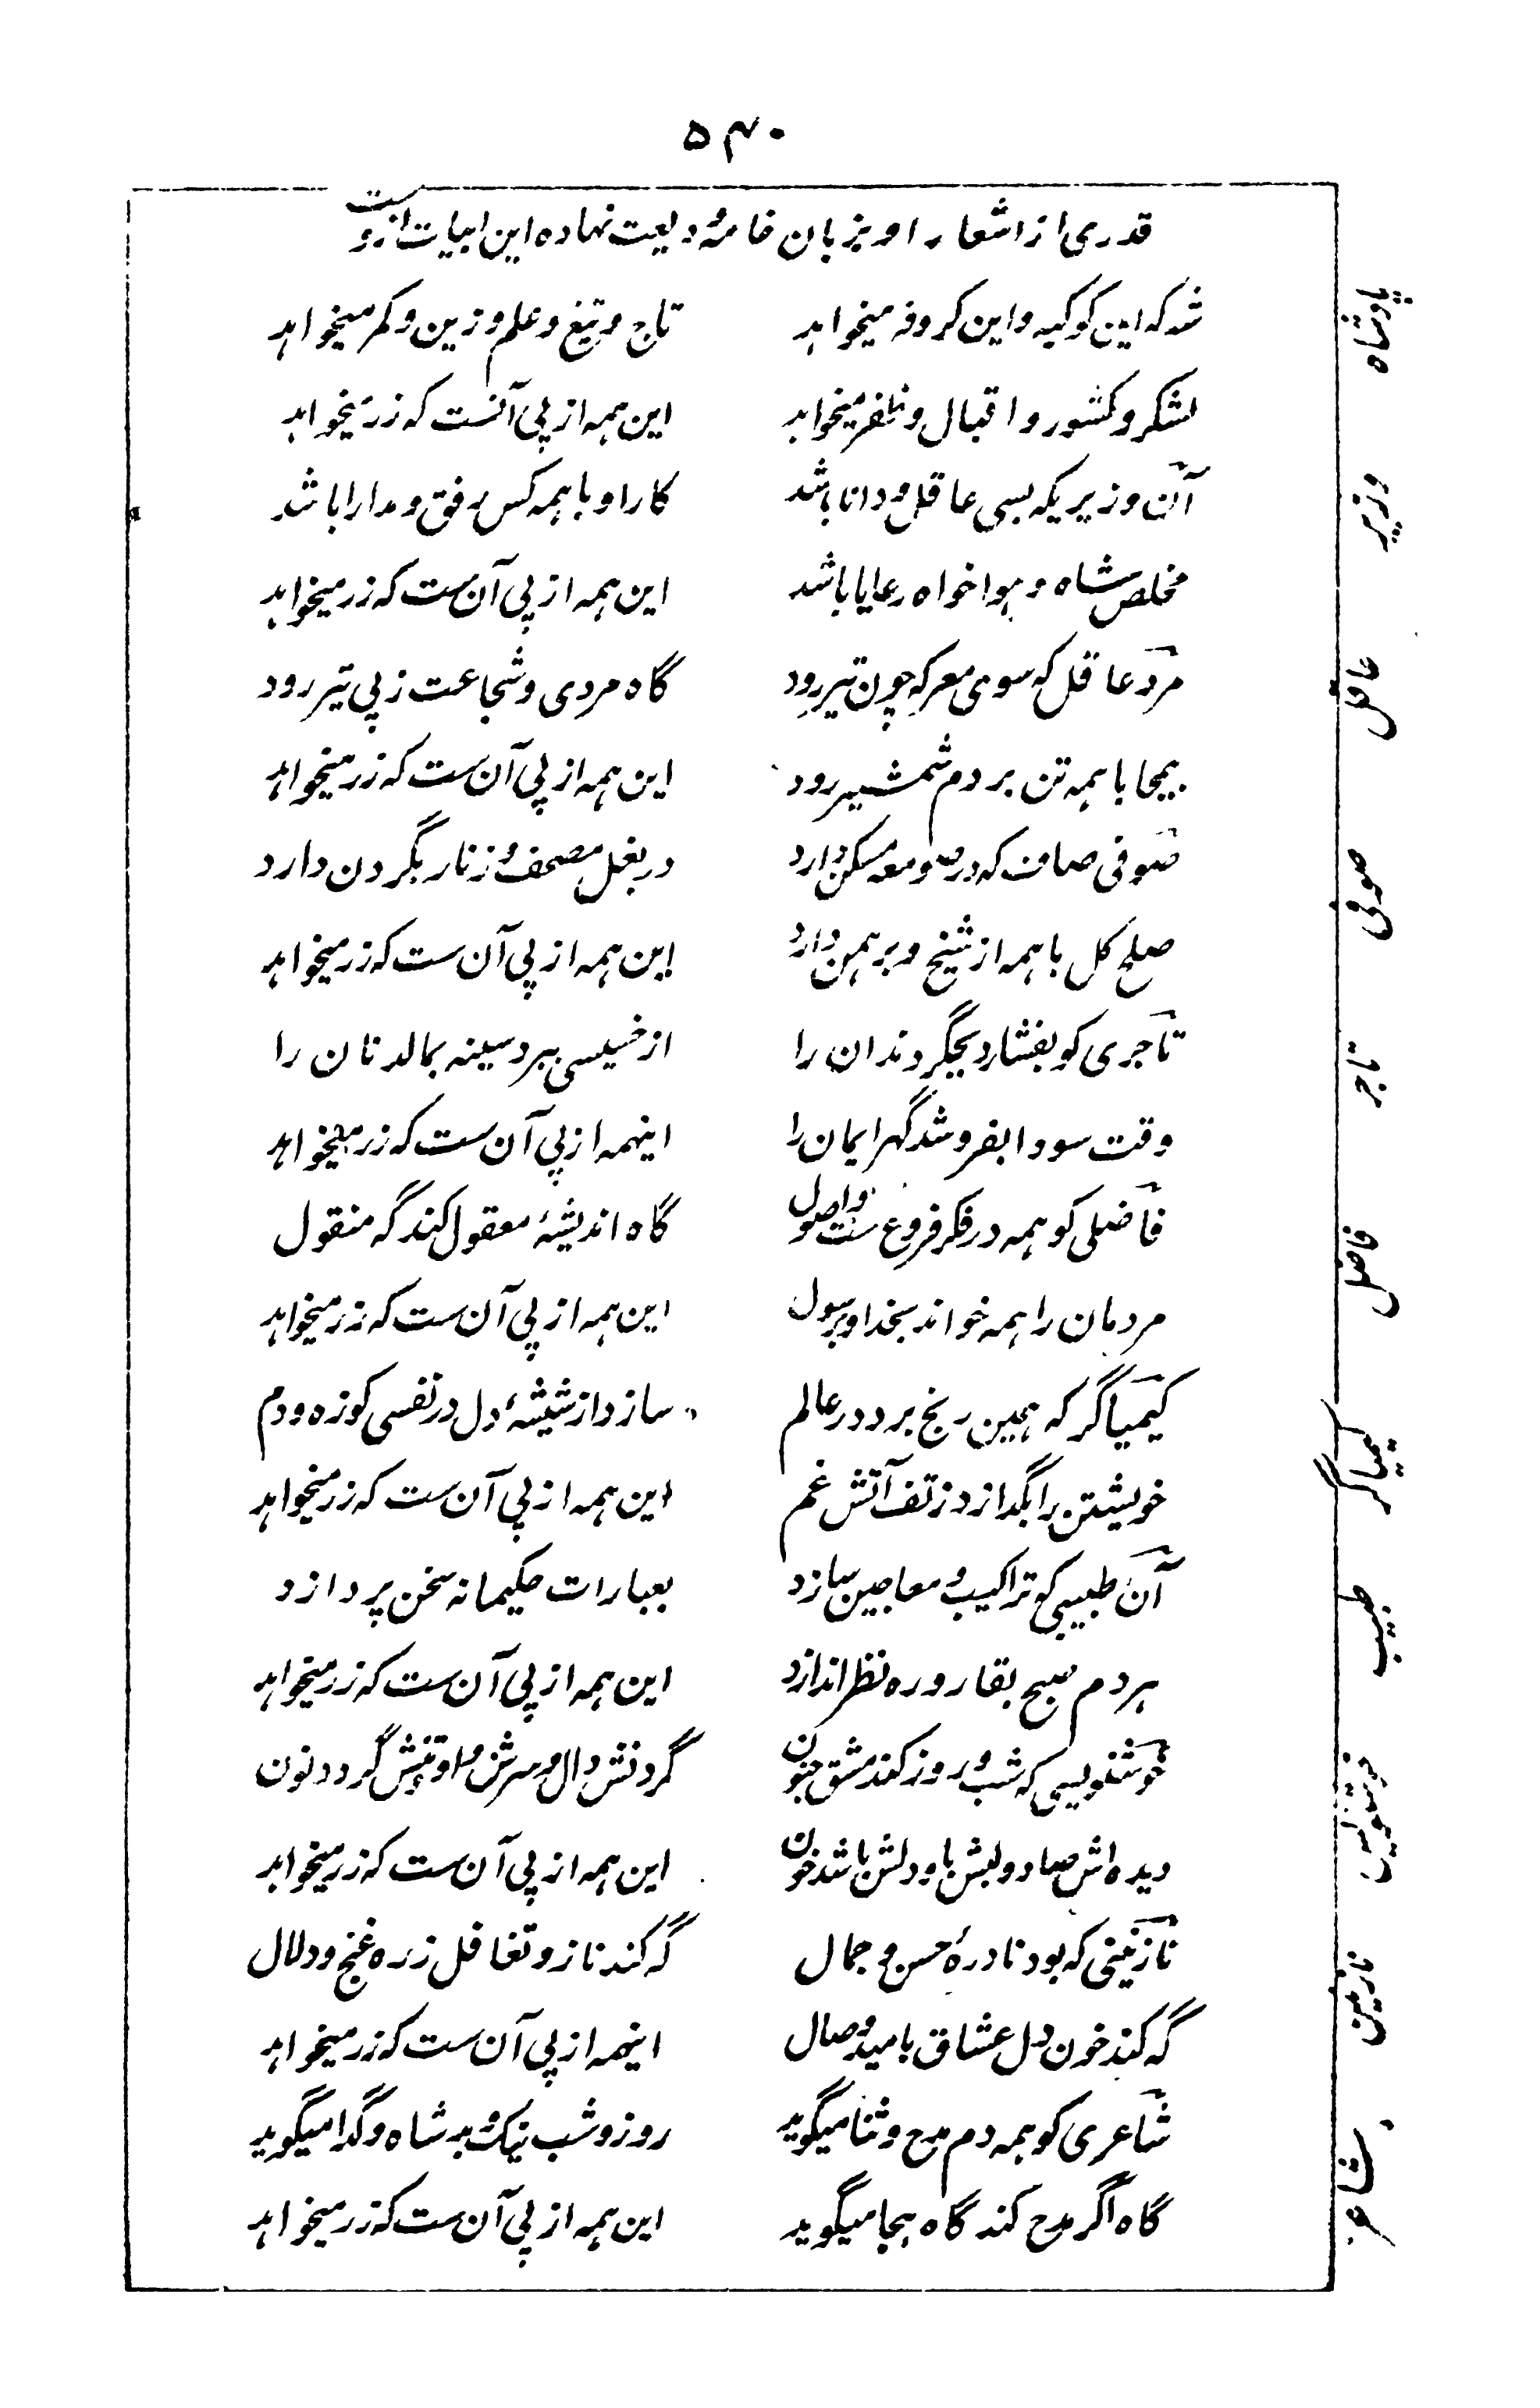 ۵۴۰
قدری از اشعار او بزبان خامهٔ ودیعت نهاده این ابیات ازوست
پادشاه
شه که این کوکبه و این کر و فر میخواهد تاج و تیغ و علم و زین و کمر میخواهد
لشکر و کشور و اقبال و ظفر میخواهد این همه از پی آنست که زر میخواهد
وزیر
آن وزیریکه بسی عاقل و دانا باشد کار او با همه کس رفق و مدارا باشد
مخلص شاه و هواخواه رعایا باشد این همه از پی آن ست که زر میخواهد
عاقل
مرد عاقل که سوی معرکه چون تیر رود گاه مردی و شجاعت ز پی تیر رود
بیمحابا همه تن بر دم شمشیر رود این همه از پی آن ست که زر میخواهد
صوفی
صوفی صاف که در صومعه مسکن دارد در بغل مصحف و زنار بگردن دارد
صلح کل با همه از شیخ و برهمن دارد این همه از پی آن ست که زر میخواهد
تاجر
تاجری کو بفشارد بجگر دندان را از خسیسی ببرد سینه بمالد نان را
وقت سودا بفروشد گهر ایمان را اینهمه از پی آن ست که زر میخواهد
فاضل
فاضلی کو همه در فکر فروع ست و اصول گاه اندیشهٔ معقول کند گه منقول
مردمان را همه خواند بخدا و برسول این همه از پی آن ست که زر میخواهد
کیمیاگر
کیمیاگر که همین رنج برد در عالم سازد از شیشهٔ دل در نفسی کوزه و دم
خویشتن را بگدازد ز تف آتش غم این همه از پی آن ست که زر میخواهد
طبیب
آن طبیبی که تراکیب و معاجین سازد بعبارات حکیمانه سخن پردازد
هر دم صبح بقاروره نظر اندازد این همه از پی آن ست که زر میخواهد
خوشنویس
خوشنویسی که شب و روز کند مشق جنون گردنش دال و سرش واو تنش گردد نون
دیده اش صاد و لبش با و دلش باشد خون این همه از پی آن ست که زر میخواهد
نازنین
نازنینی که بود نادرهٔ حسن و جمال گه کند ناز و تغافل ز ره غنج و دلال
گه کند خون دل عشاق بامید وصال اینهمه از پی آن ست که زر میخواهد
شاعر
شاعری کو همه دم مدح و ثنا میگوید روز و شب نیک و بد شاه و گدا میگوید
گاه اگر مدح کند گاه هجا میگوید این همه از پی آن ست که زر میخواهد